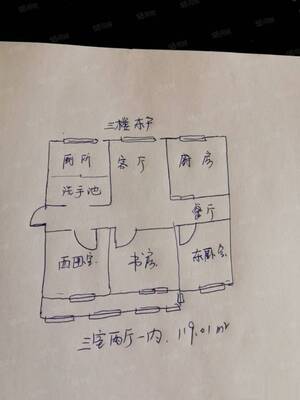 三楼东户
厕所
客厅
厨房
洗手池
餐厅
西卧室
书房
东卧室
三室两厅一内. 119.01m²